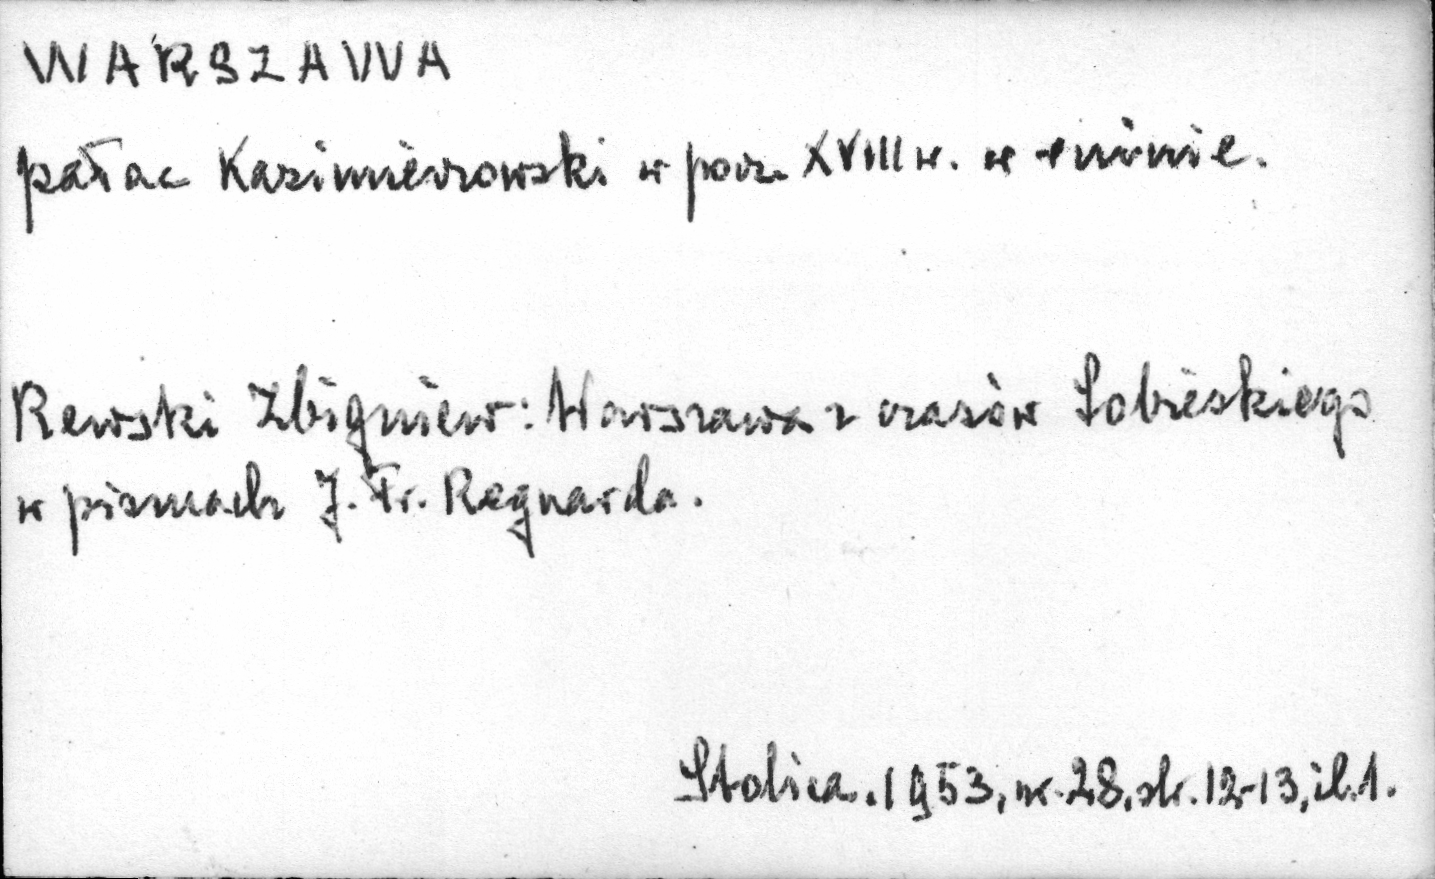 WARSZAWA
pałac Kazimierzowski w pocz. XVIII w. w ruinie.
Rewski Zbigniew: Warszawa z czasów Sobieskiego
w pismach J. Fr. Regnarda.
Stolica. 1953, nr. 28, str. 12-13, il. 1.